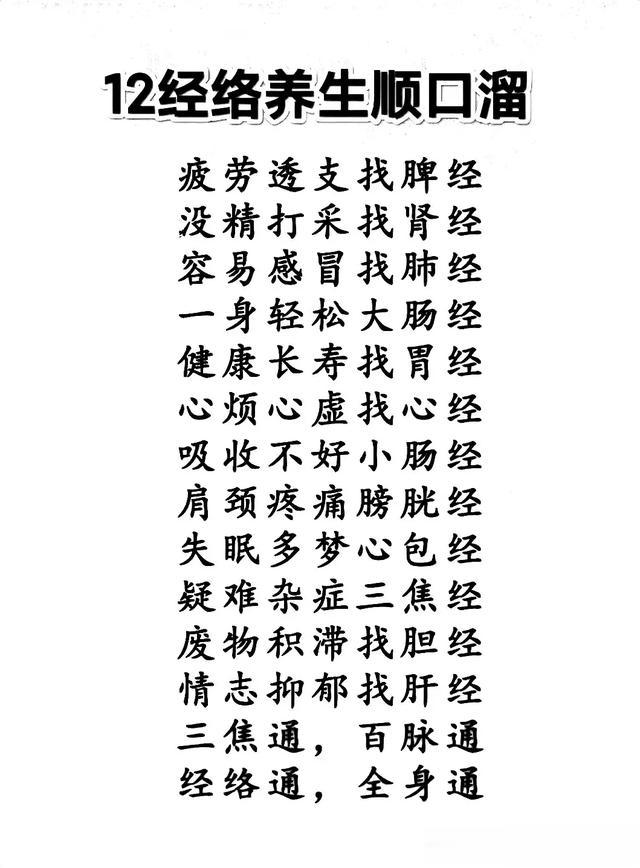 12经络养生顺口溜
疲劳透支找脾经
没精打采找肾经
容易感冒找肺经
一身轻松大肠经
健康长寿找胃经
心烦心虚找心经
吸收不好小肠经
肩颈疼痛膀胱经
失眠多梦心包经
疑难杂症三焦经
废物积滞找胆经
情志抑郁找肝经
三焦通，百脉通
经络通，全身通